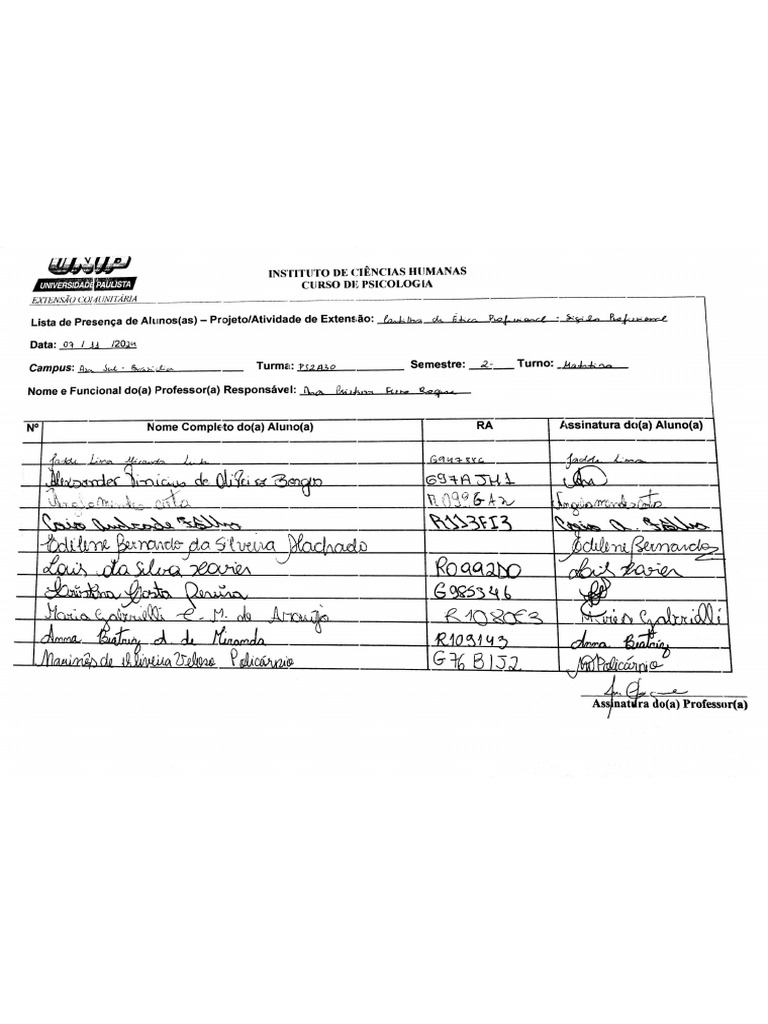 UNIP
UNIVERSIDADE PAULISTA
EXTENSÃO COMUNITÁRIA
INSTITUTO DE CIÊNCIAS HUMANAS
CURSO DE PSICOLOGIA
Lista de Presença de Alunos(as) – Projeto/Atividade de Extensão: Cartilha de Ética Profissional - Sigilo Profissional
Data: 07 / 11 /2024
Campus: Asa Sul - Brasília Turma: PS2A30 Semestre: 2º Turno: Matutino
Nome e Funcional do(a) Professor(a) Responsável: Ana
Nº Nome Completo do(a) Aluno(a) RA Assinatura do(a) Aluno(a)
Lima Miranda Lima
Alexsander Vinicius de Oliveira Borges G97AJH1
Angela mendes costa R099GA2 Angela mendes costa
Caio Andrade Fôlha R113FI3 Caio A. Fôlha
Edilene Bernardo da Silveira Machado Edilene Bernardo
Laís da Silva Xavier R0992D0 Laís Xavier
Kristina Costa Pereira G985346
Maria Gabrielli C. M. de Araújo R1080E3 Maria Gabrielli
Anna Beatriz A. de Miranda R109143 Anna Beatriz
Marinês de Oliveira Veloso Policárpio G76BIJ2 MVPolicárpio
Assinatura do(a) Professor(a)